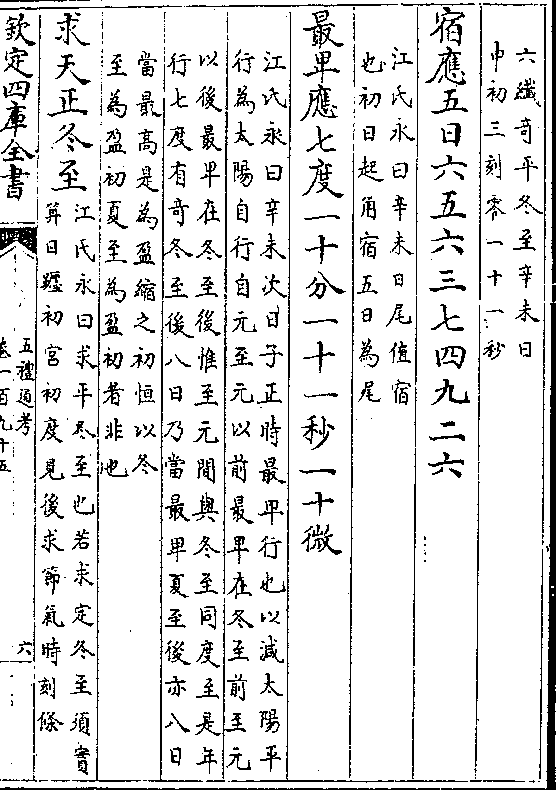 六纖奇平冬至辛未日
申初三刻零一十一秒
宿應五日六五六三七四九二六
江氏永曰辛未日尾值宿
也初日起角宿五日為尾
最卑應七度一十分一十一秒一十微
江氏永曰辛未次日子正時最卑行也以減太陽平
行為太陽自行自元至元以前最卑在冬至前至元
以後最卑在冬至後惟至元間與冬至同度至是年
行七度有奇冬至後八日乃當最卑夏至後亦八日
當最高是為盈縮之初恒以冬
至為盈初夏至為盈初者非也
求天正冬至
江氏永曰求平冬至也若求定冬至須實
算日躔初宮初度見後求節氣時刻條
欽定四庫全書
五禮通考
卷一百九十五
六